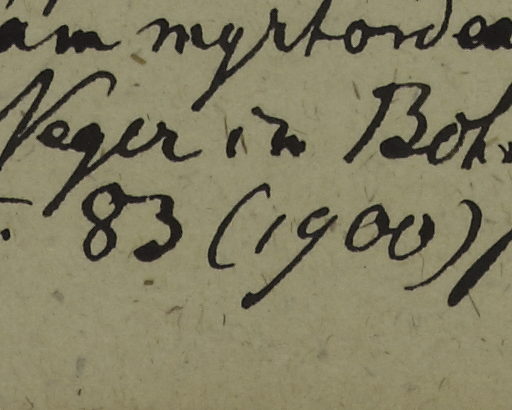 am myrtordea
Neger in Boh
83 (1900)